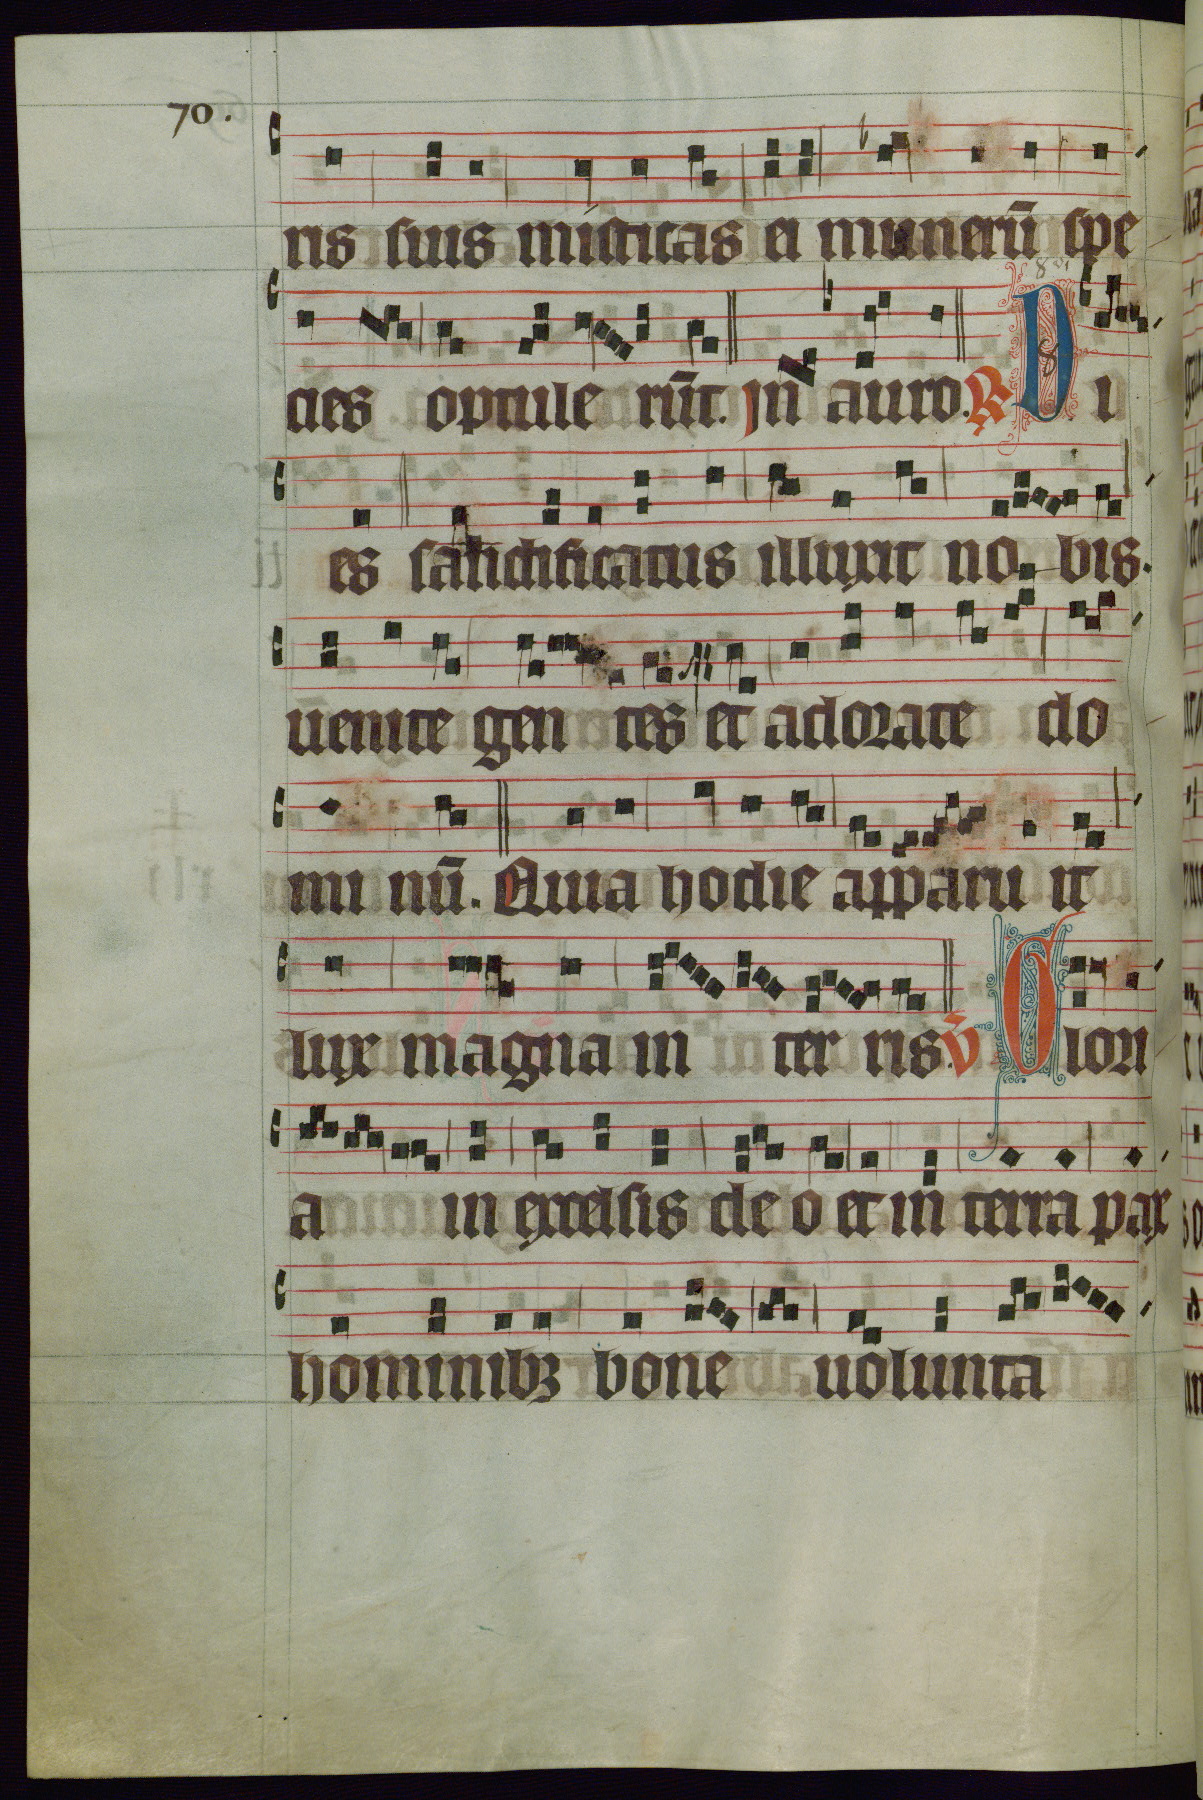 70.
ris suis misticas ei munerū spe
cies optule rūt. jn auro. R̷ D i
es sanctificatus illuxit no bis.
uenite gen tes et adorate do
mi nū. Quia hodie apparu it
lux magna in ter ris. v̄ Glori
a in excelsis de o et in terra pax
hominibꝫ bone uolunta